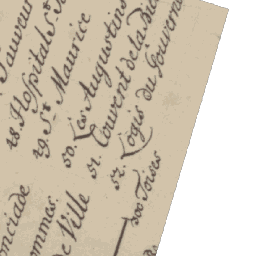 Sauveur
48. Hospital St.
49. St. Maurice
50. Les Augustins
51. Couvent de la
52. Logis du Gouverne
200 Toises
nciade
ommes
de Ville